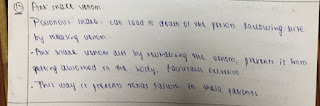 (15) Anti snake venom.
Poisonous snake, can lead to death of the person following bite
by releasing venom.
- Anti snake venom acts by neutralizing the venom, prevents it from
getting absorbed in the body, facilitates excretion
- This way it prevents renal failure in these patients